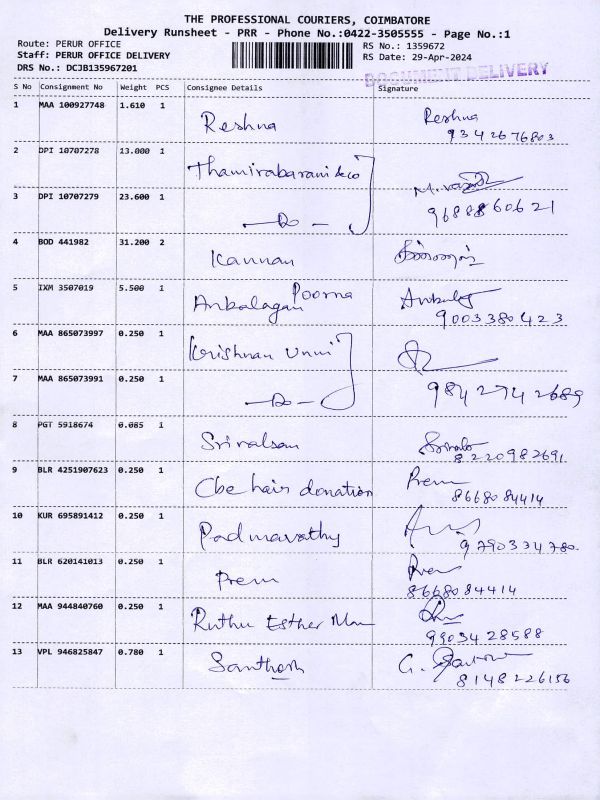 THE PROFESSIONAL COURIERS, COIMBATORE
Delivery Runsheet - PRR - Phone No.:0422-3505555 - Page No.:1
Route: PERUR OFFICE
RS No.: 1359672
Staff: PERUR OFFICE DELIVERY
RS Date: 29-Apr-2024
DRS No.: DCJB135967201
DOCUMENT DELIVERY
S No Consignment No Weight PCS Consignee Details Signature
1 MAA 100927748 1.610 1 Reshna Reshna
9342676803
2 DPI 10707278 13.000 1 Thamirabarani &co
3 DPI 10707279 23.600 1 - Do -
9688860621
4 BOD 441982 31.200 2 Kannan
5 IXM 3507019 5.500 1 Anbalagan Poorna
9003380423
6 MAA 865073997 0.250 1 Krishnan Unni
7 MAA 865073991 0.250 1 - Do -
9842742689
8 PGT 5918674 0.085 1 Srivalsan
8220982691
9 BLR 4251907623 0.250 1 Cbe hair donation Prem
8668084414
10 KUR 695891412 0.250 1 Padmavathy
9790334780.
11 BLR 620141013 0.250 1 Prem Prem
8668084414
12 MAA 944840760 0.250 1 Ruthu Esther
9903428588
13 VPL 946825847 0.780 1 Santhosh
8148226156